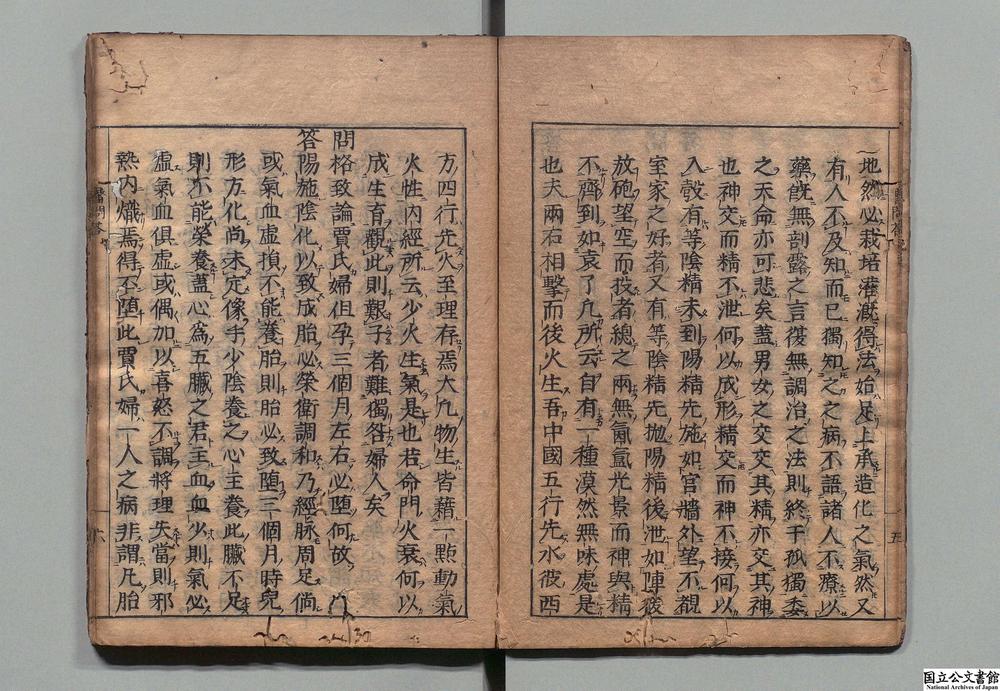 地然必栽培灌漑得法始足上承造化之氣然又
有人不及知而已獨知之之病不語諸人不療以
藥旣無剖露之言復無調治之法則終于孤獨委
之天命亦可悲矣蓋男女之交交其精亦交其神
也神交而精不泄何以成形精交而神不接何以
入彀有等陰精未到陽精先施如官牆外望不覩
室家之好者又有等陰精先拋陽精後泄如陣後
放砲望空而投者總之兩無氤氳光景而神與精
不齊到如袁了凡所云自有一種漠然無味處是
也夫兩石相擊而後火生吾中國五行先水彼西
方四行先火至理存焉大凡物生皆藉一點動氣
火性内經所云少火生氣是也若命門火衰何以
成生育觀此則艱子者難獨咎婦人矣
問格致論賈氏婦但孕三個月左右必墮何故
答陽施陰化以致成胎必榮衛調和乃經脉周足倘
或氣血虛損不能養胎則胎必致墮三個月時兒
形方化尚未定像手少陰養之心主養此臟不足
則不能榮養蓋心爲五臟之君主血血少則氣必
虛氣血俱虛或偶加以喜怒不調將理失當則邪
熱内熾焉得不墮此賈氏婦一人之病非謂凡胎
五
六
国立公文書館
National Archives of Japan